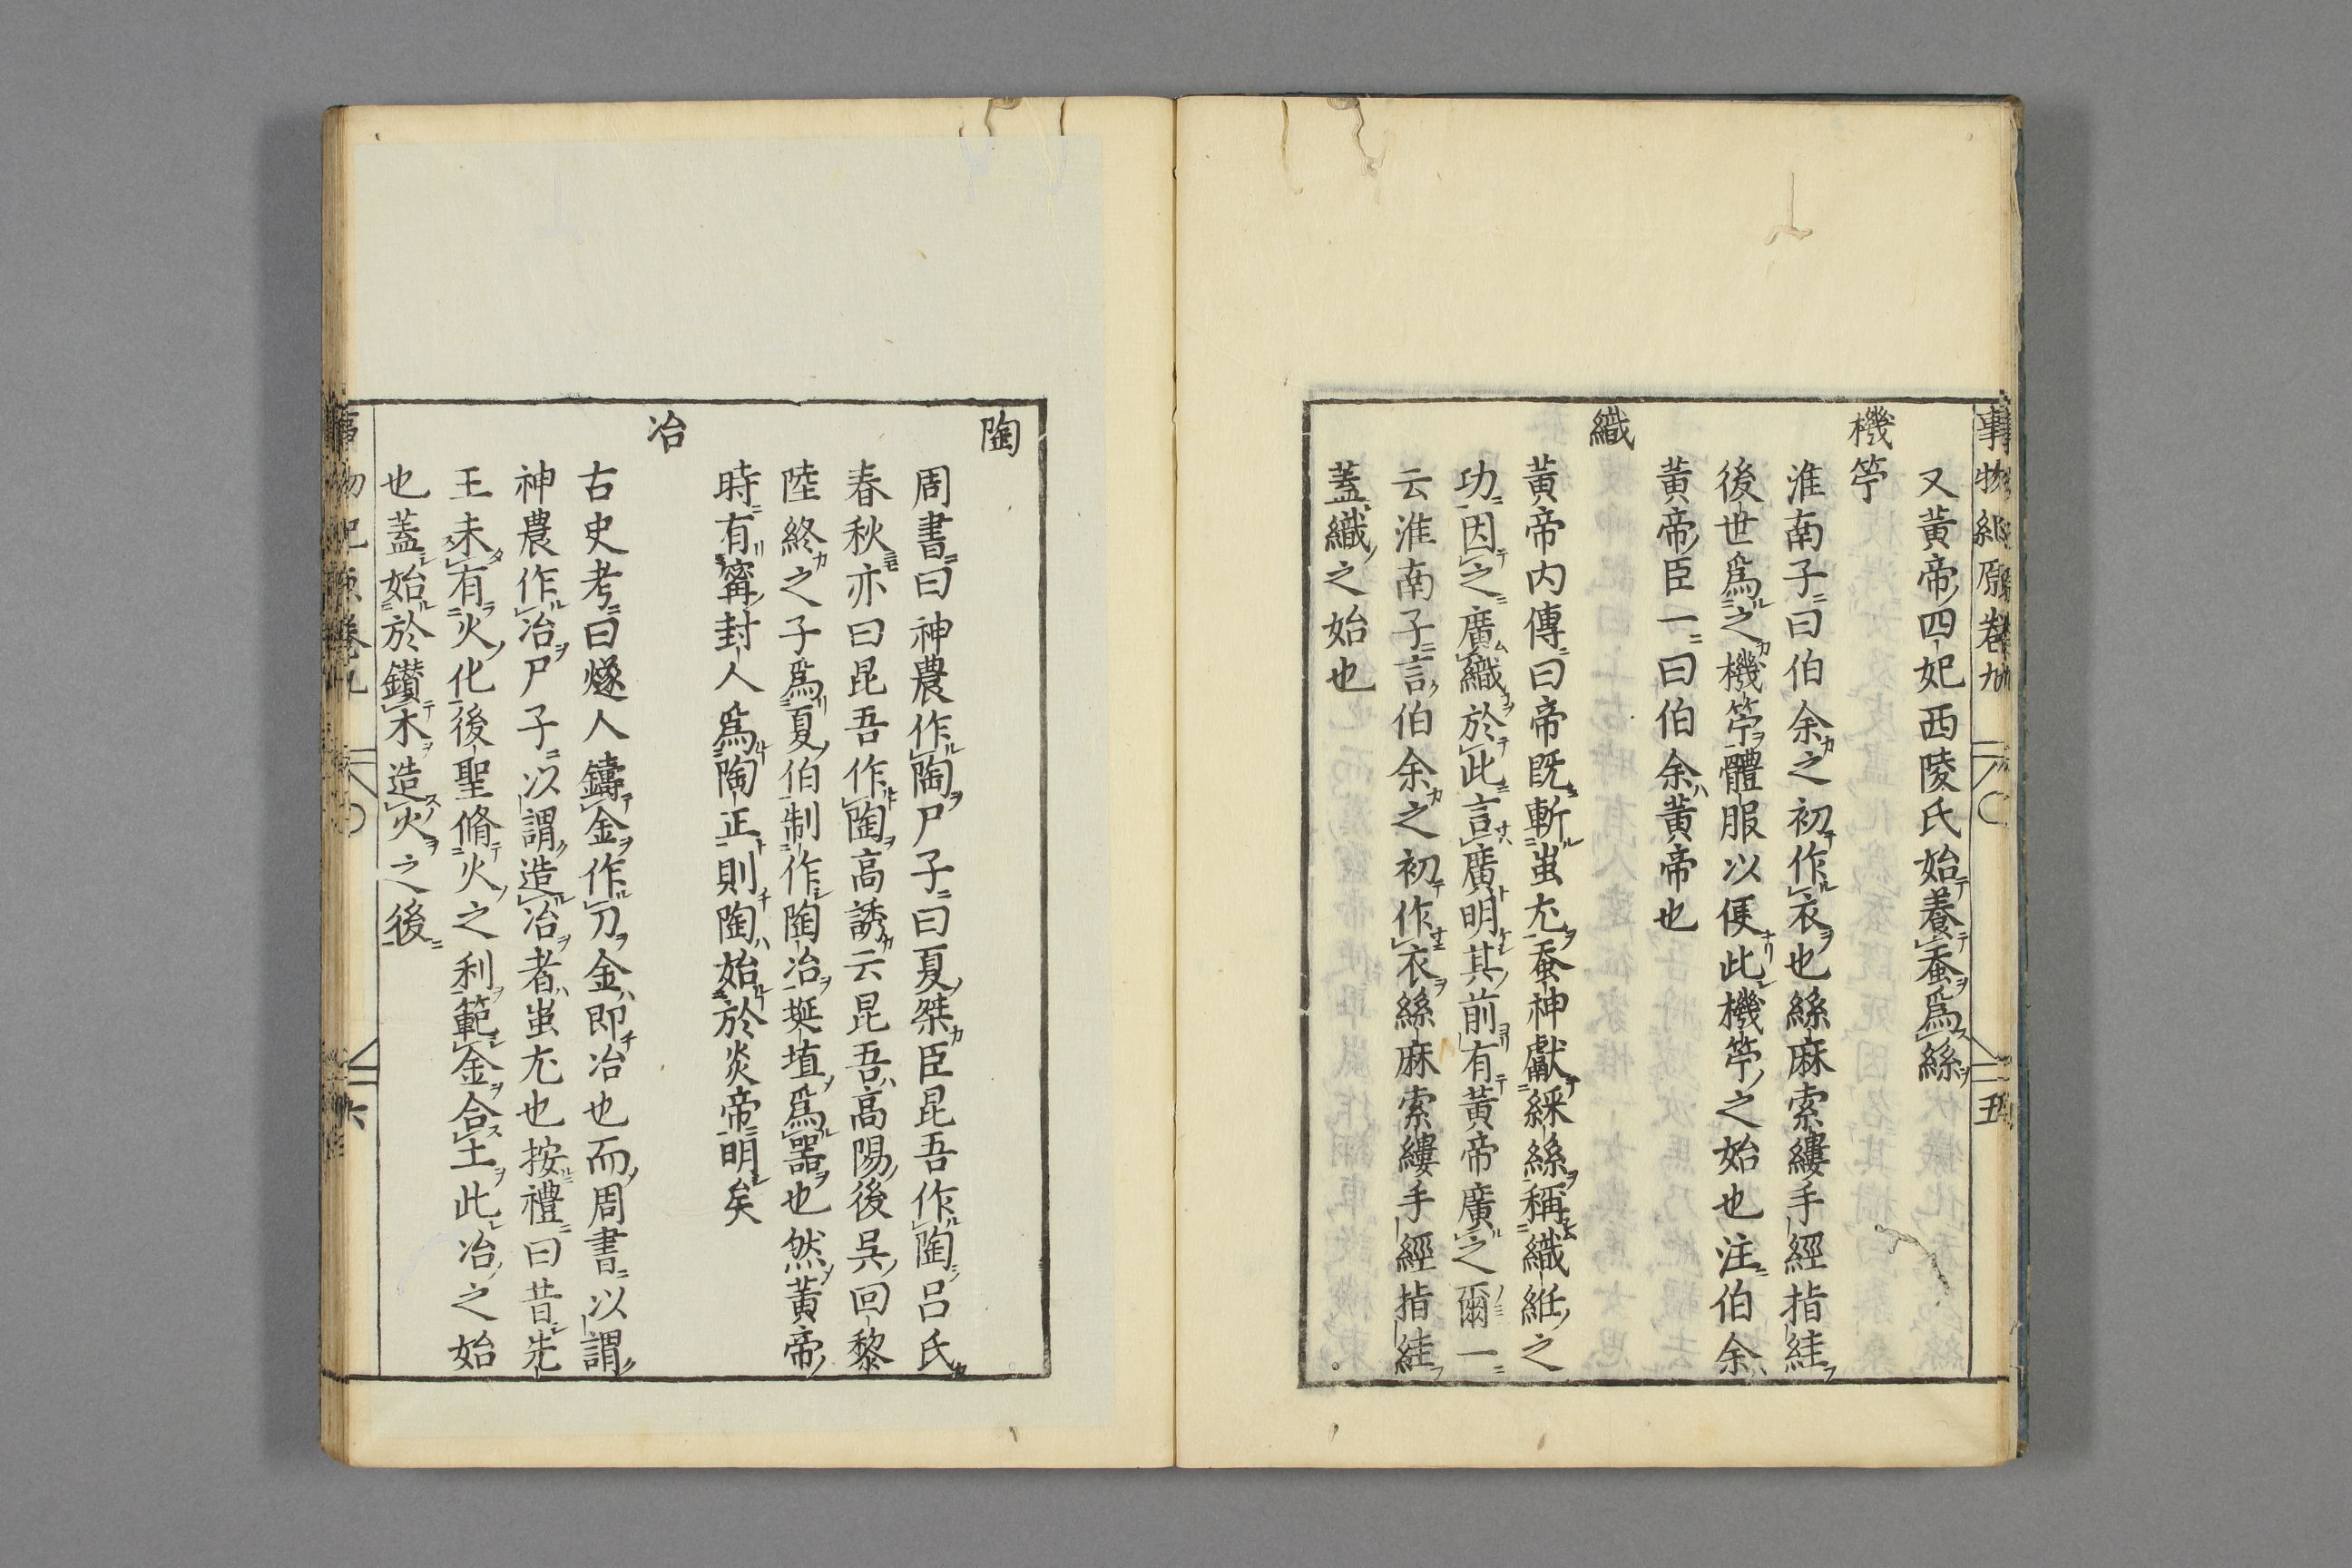 事物紀原卷九
又黃帝四妃西陵氏始養蚕爲絲
機竿
淮南子曰伯余之初作衣也絲麻索縷手經指絓
後世爲之機竿體服以便此機竿之始也注伯余
黃帝臣一曰伯余黃帝也
織
黃帝内傳曰帝既斬蚩尤蚕神獻綵絲稱織紝之
功因之廣織於此言廣明其前有黃帝廣之爾一
云淮南子言伯余之初作衣絲麻索縷手經指絓
蓋織之始也
陶
周書曰神農作陶尸子曰夏桀臣昆吾作陶呂氏
春秋亦曰昆吾作陶高誘云昆吾高陽後吳回黎
陸終之子爲夏伯制作陶冶埏埴爲器也然黃帝
時有甯封人爲陶正則陶始於炎帝明矣
冶
古史考曰燧人鑄金作刀金即冶也而周書以謂
神農作冶尸子以謂造冶者蚩尤也按禮曰昔先
王未有火化後聖脩火之利範金合土此冶之始
也蓋始於鑚木造火之後